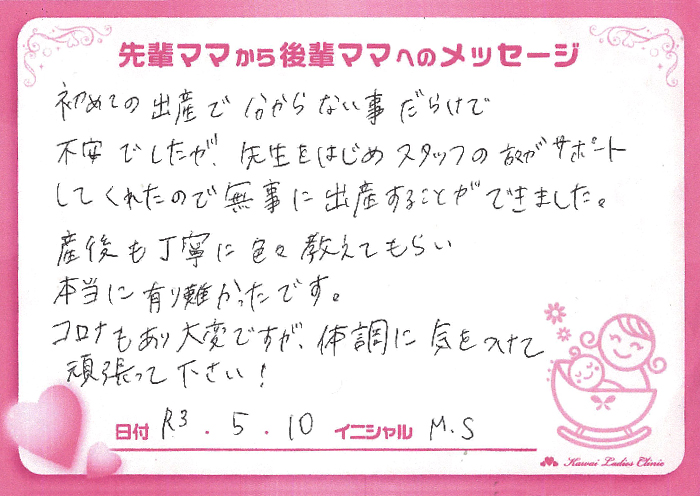 先輩ママから後輩ママへのメッセージ
初めての出産で分からない事だらけで
不安でしたが、先生をはじめスタッフの方がサポート
してくれたので無事に出産することができました。
産後も丁寧に色々教えてもらい
本当に有り難かったです。
コロナもあり大変ですが、体調に気をつけて
頑張って下さい!
日付 R3 . 5 . 10 イニシャル M.S
Kawai Ladies Clinic